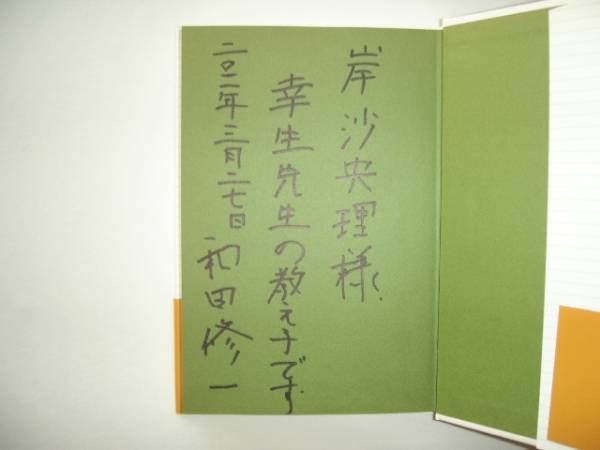 岸沙央理様
幸生先生の教え子です
二〇一一年三月二七日 和田修一